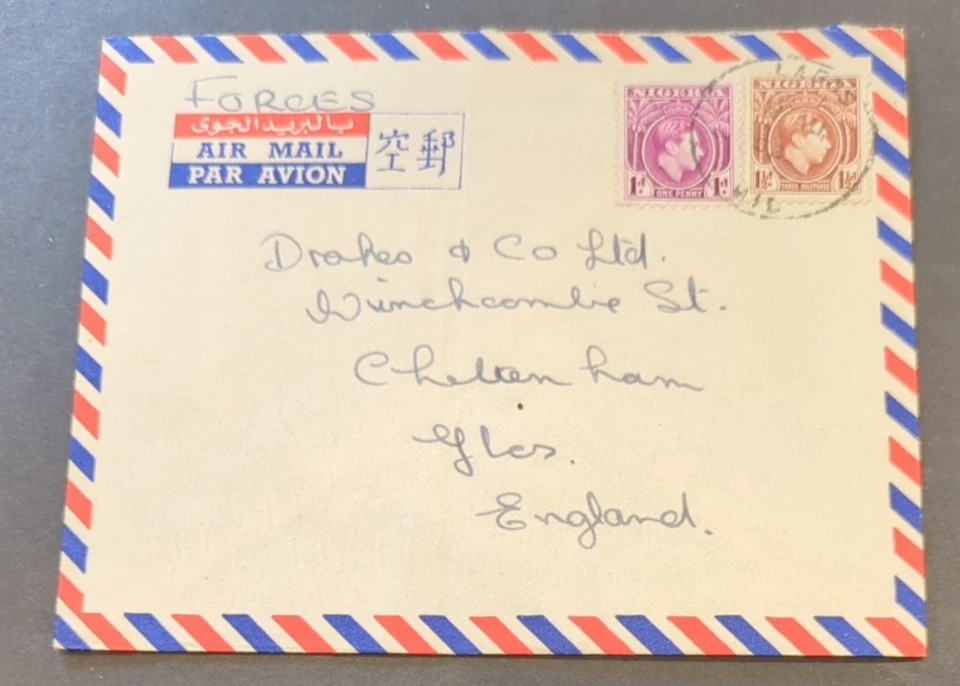 FORCES
بالبريد الجوى
AIR MAIL
PAR AVION
空郵
NIGERIA
1d ONE PENNY 1d
NIGERIA
1½d THREE HALFPENCE 1½d
LAGOS
Drakes & Co Ltd.
Winchcombe St.
Cheltenham
Glos.
England.